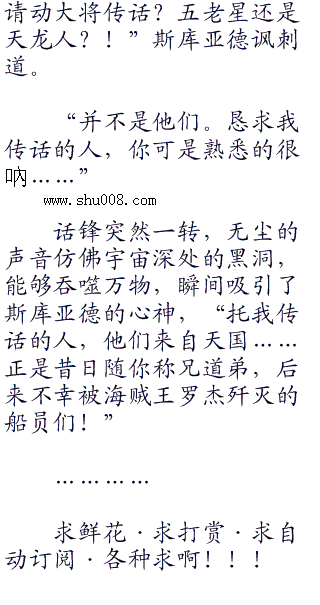 请动大将传话？五老星还是
天龙人？！”斯库亚德讽刺
道。
“并不是他们。恳求我
传话的人，你可是熟悉的很
呐……”
www.shu008.com
话锋突然一转，无尘的
声音仿佛宇宙深处的黑洞，
能够吞噬万物，瞬间吸引了
斯库亚德的心神，“托我传
话的人，他们来自天国……
正是昔日随你称兄道弟，后
来不幸被海贼王罗杰歼灭的
船员们！”
…………
求鲜花·求打赏·求自
动订阅·各种求啊！！！